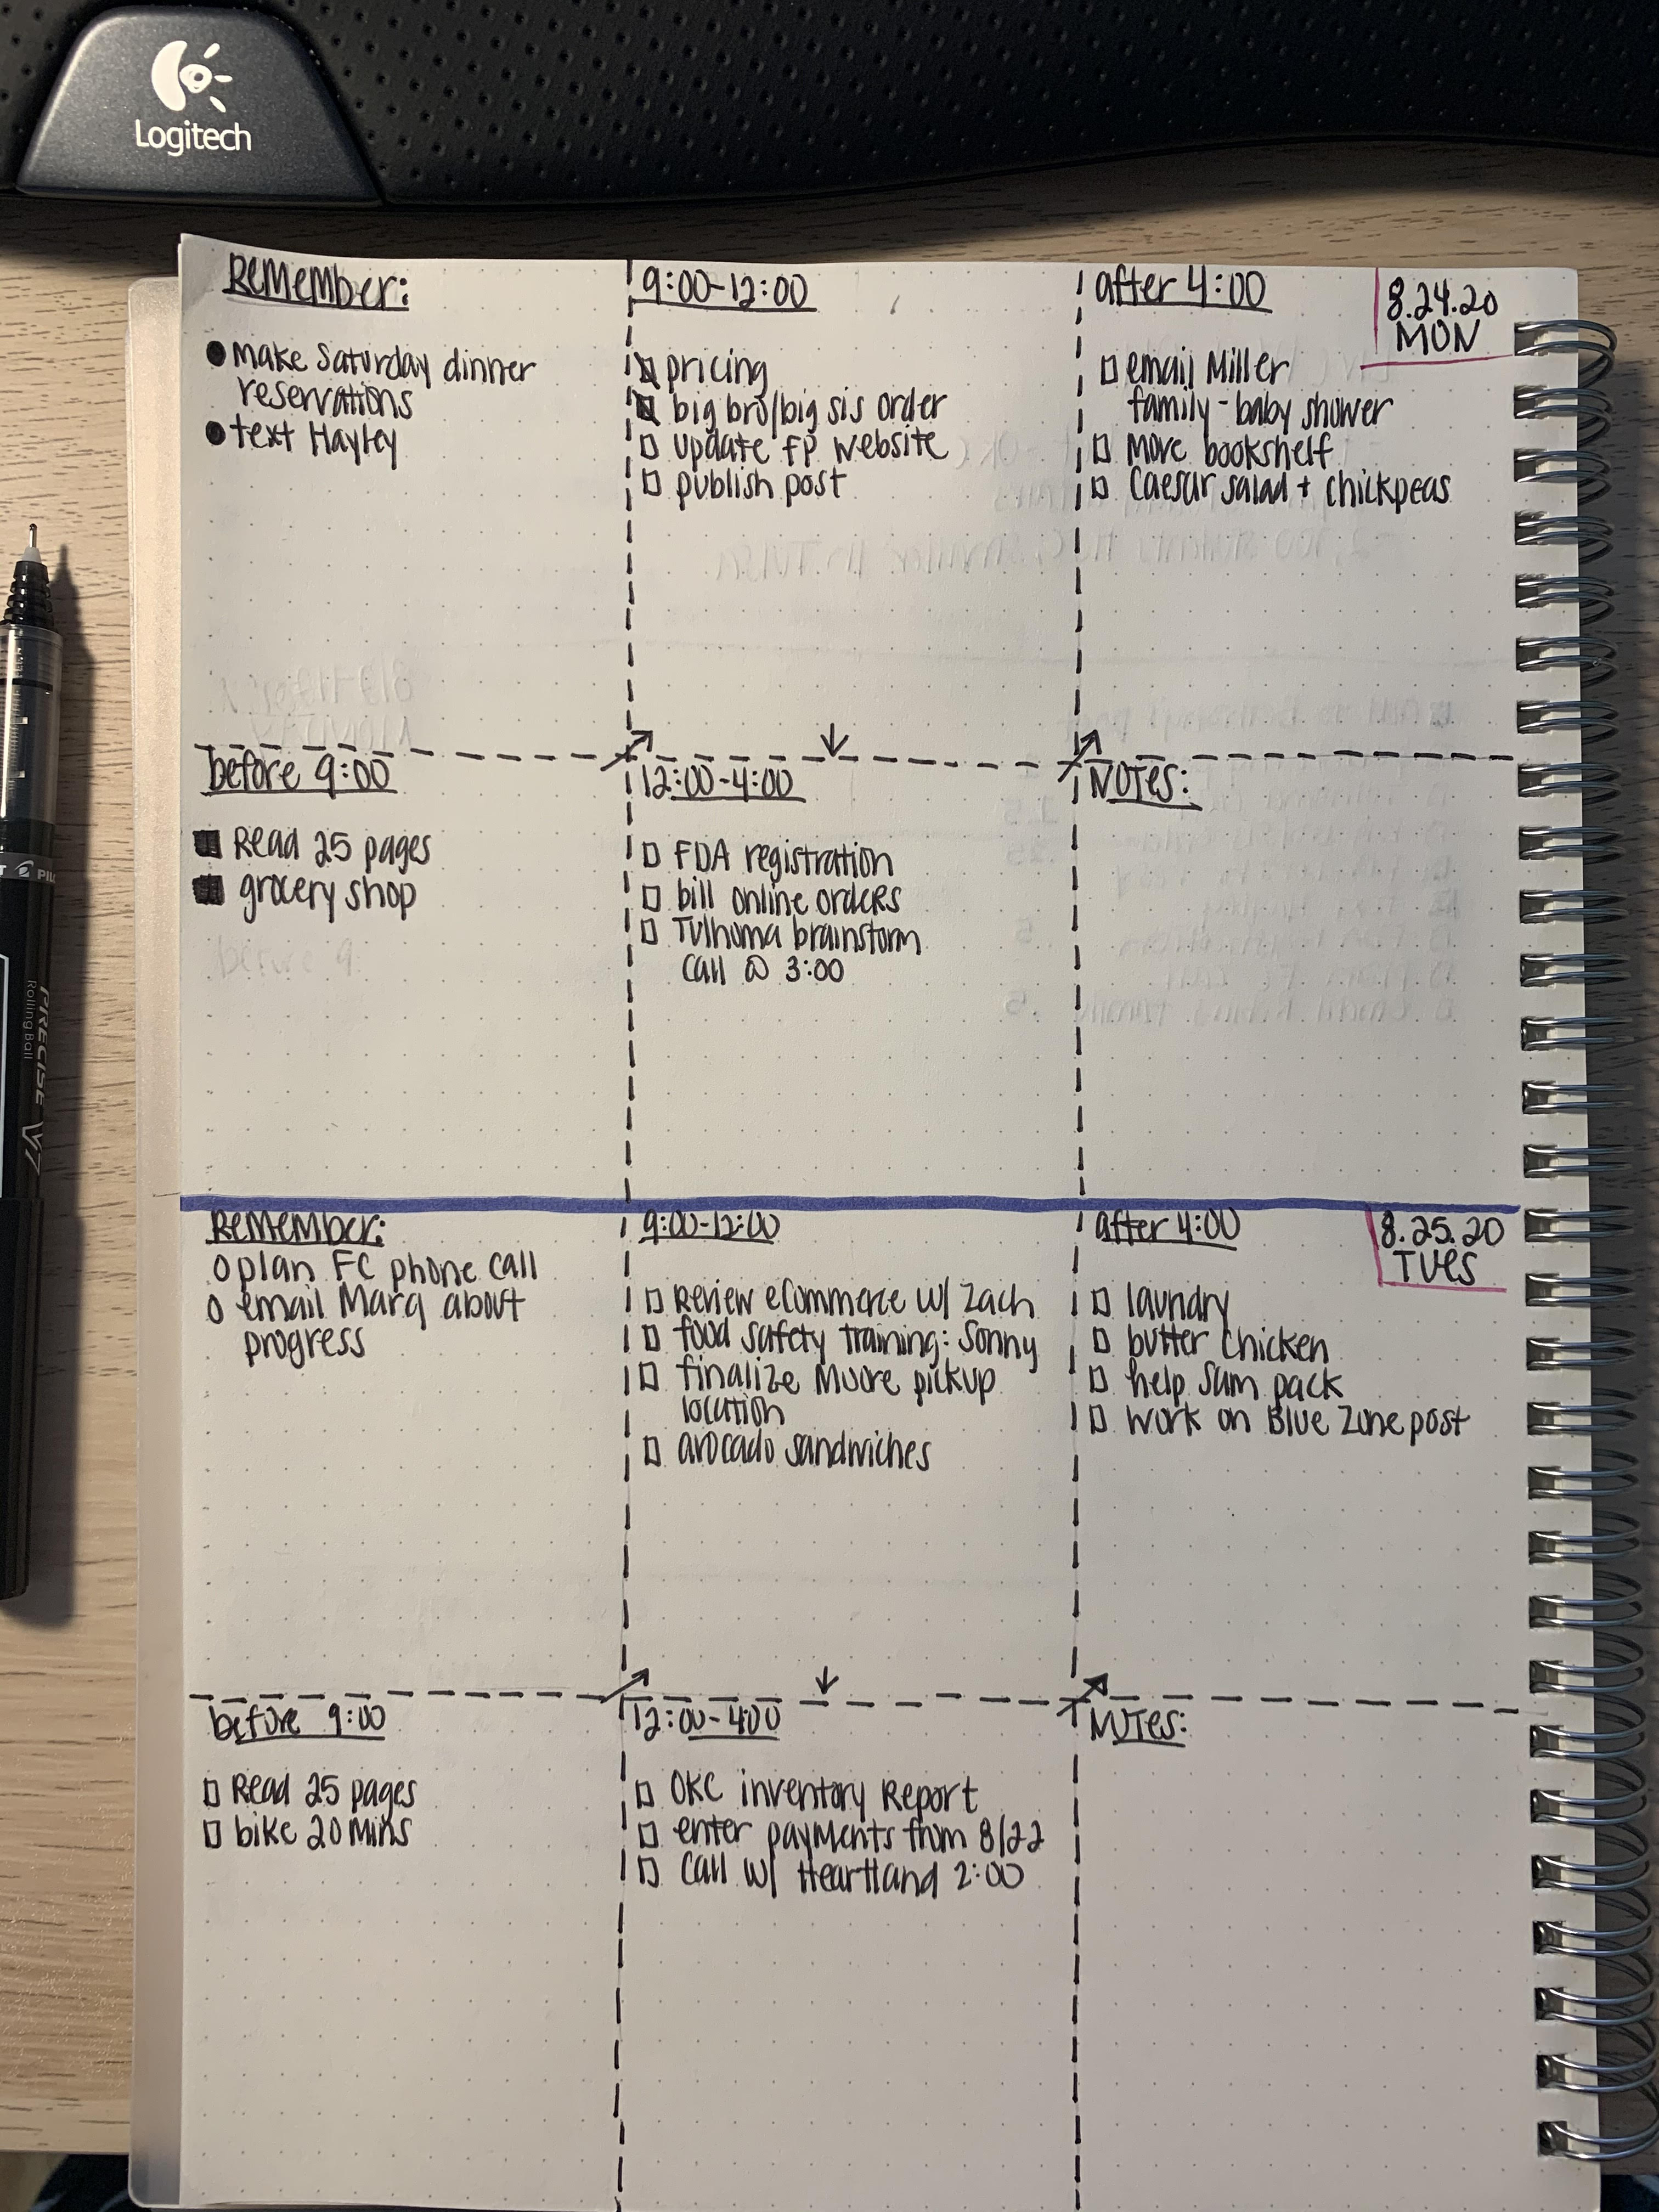 Logitech
Remember:
make Saturday dinner
reservations
text Hayley
before 9:00
Read 25 pages
grocery shop
9:00-12:00
pricing
big bro/big sis order
update FP website
publish post
12:00-4:00
FDA registration
bill online orders
Tulhoma brainstorm
call @ 3:00
after 4:00
email Miller
family - baby shower
Move bookshelf
Caesar salad + chickpeas
NOTES:
8.24.20
MON
Remember:
plan FC phone call
email Marq about
progress
before 9:00
Read 25 pages
bike 20 mins
9:00-12:00
Review eCommerce w/ Zach
food safety training: Sonny
finalize Moore pickup
location
avocado sandwiches
12:00-4:00
OKC inventory Report
enter payments from 8/22
call w/ Heartland 2:00
after 4:00
laundry
butter chicken
help Sam pack
work on Blue Zone post
NOTES:
8.25.20
TUES
PIL
PRECISE V7
Rolling Ball